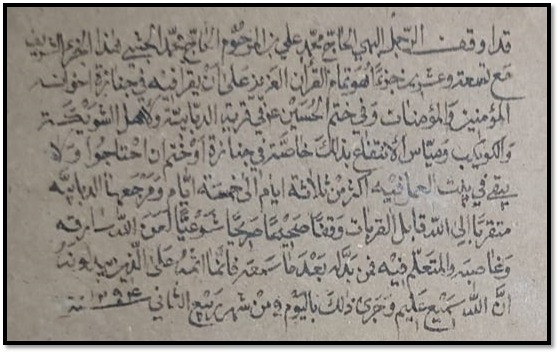 قد اوقف الرجل البهي الحاج محمد علي بن المرحوم الحاج محمد الجشي هذا الجزء الشريف
مع تسعة وعشرين جزءًا هو تمام القرآن العزيز على أن يقرا فيه في جنائز اخوانه
المؤمنين والمؤمنات وفي ختم الحسين عوني قرية الدبابية ولاهل الشويكة
والكويكب ومياس الانتفاع بذلك خاصة في جنازة او ختم ان احتاجوا ولا
يبقى في بيت العمل فيه اكثر من ثلاثة ايام الى خمسة ايام ومرجعها الدبابيه
متقربا الى الله قابل القربات وقفا صحيحا صريحا شرعيا لعن الله سارقه
وغاصبه والمتعلم فيه فمن بدله بعد ما سمعه فانما اثمه على الذين يبدلونه
ان الله سميع عليم وجرى ذلك باليوم من شهر ربيع الثاني سنة